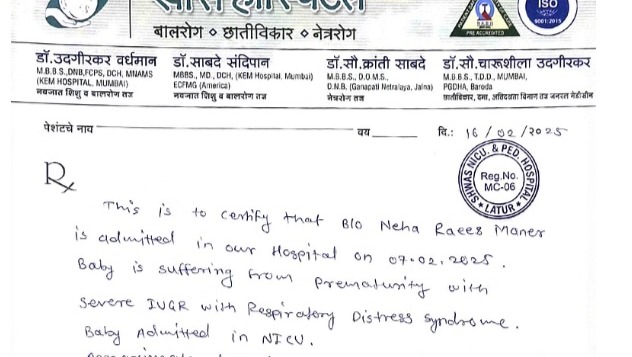 बालरोग ◇ छातीविकार ◇ नेत्ररोग
PRE ACCREDITED
ISO
9001:2015
डॉ.उदगीरकर वर्धमान
M.B.B.S.,DNB,FCPS, DCH, MNAMS
(KEM HOSPITAL, MUMBAI)
नवजात शिशु व बालरोग तज्ञ
डॉ.साबदे संदिपान
MBBS., MD., DCH, (KEM Hospital, Mumbai)
ECFMG (America)
नवजात शिशु व बालरोग तज्ञ
डॉ.सौ.क्रांती साबदे
M.B.B.S., D.O.M.S.,
D.N.B. (Ganapati Netralaya, Jalna)
नेत्ररोग तज्ञ
डॉ.सौ.चारूशीला उदगीरकर
M.B.B.S., T.D.D., MUMBAI,
PGDHA, Baroda
पेशंटचे नाव
वय
दि.: 16/02/2025
SHWAS NICU. & PED. HOSPITAL
Reg.No.
MC-06
LATUR
Rx
This is to certify that B/O Neha Raees Maner
is admitted in our Hospital on 07.02.2025.
Baby is suffering from Prematurity with
severe IUGR with Respiratory Distress Syndrome.
Baby Admitted in NICU.